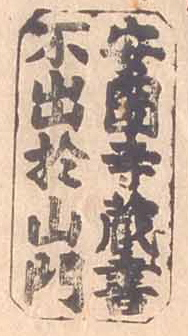 安國寺蔵書
不出於山門